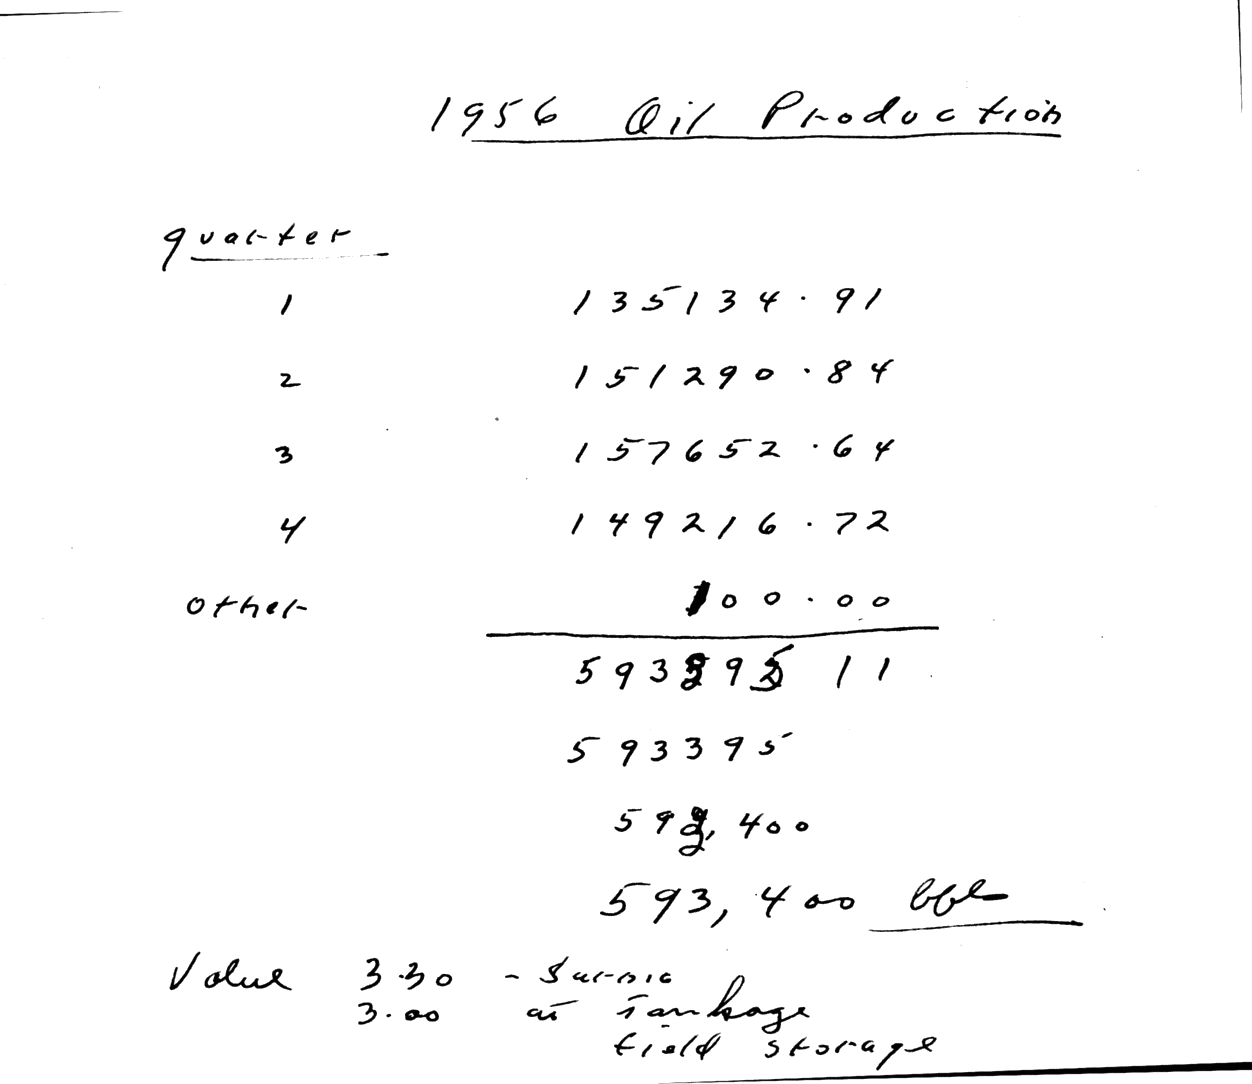 1956 Oil Production
quarter
1 135134.91
2 151290.84
3 157652.64
4 149216.72
other 100.00
593395 11
593395
593,400
593,400 bbl
Value 3.30 - Sarnia
3.00 at Tankage
field storage